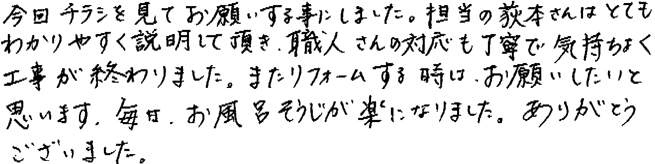 今回チラシを見てお願いする事にしました。担当の荻本さんはとても
わかりやすく説明して頂き、職人さんの対応も丁寧で気持ちよく
工事が終わりました。またリフォームする時は、お願いしたいと
思います。毎日、お風呂そうじが楽になりました。ありがとう
ございました。